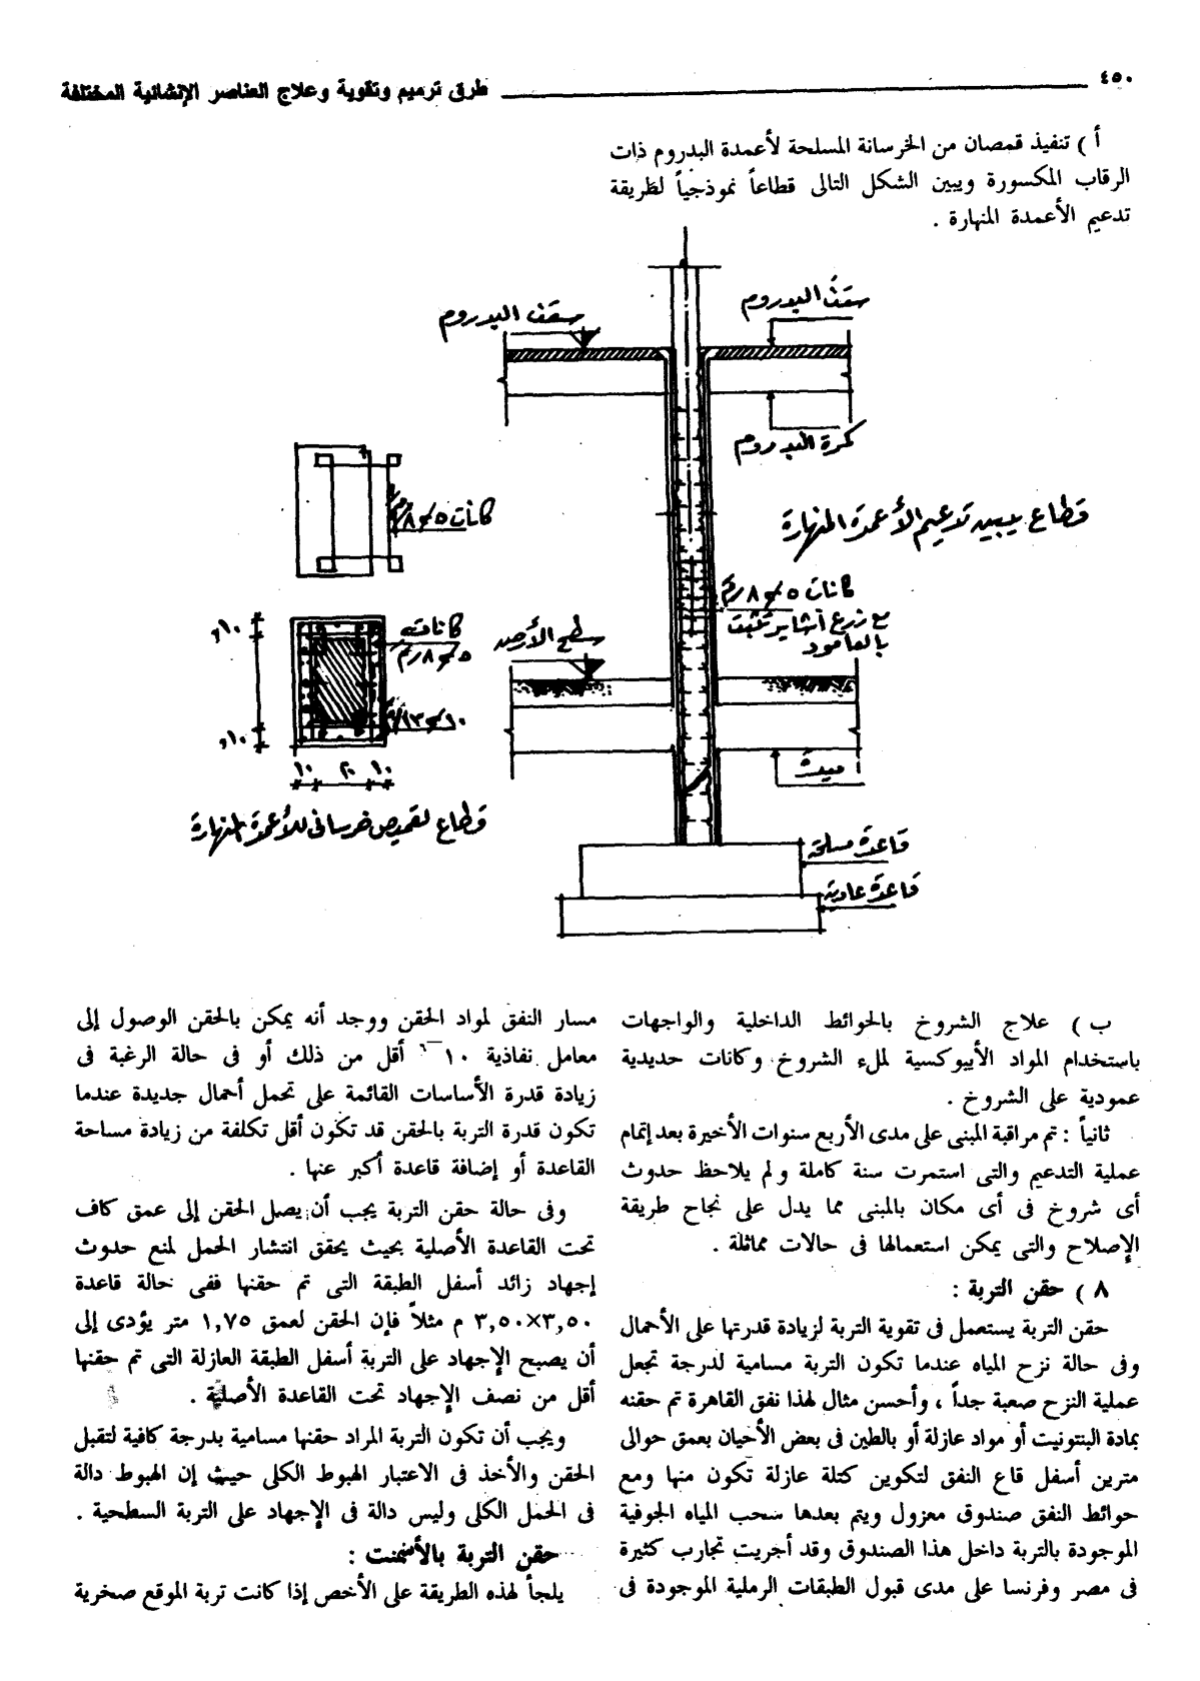 ٤٥٠
طرق ترميم وتقوية وعلاج العناصر الإنشائية المختلفة
أ ) تنفيذ قمصان من الخرسانة المسلحة لأعمدة البدروم ذات
الرقاب المكسورة ويبين الشكل التالى قطاعاً نموذجياً لطريقة
تدعيم الأعمدة المنهارة .
سقف البدروم
سقف البدروم
كمرة البدروم
قطاع يبين تدعيم الأعمدة المنهارة
كانات ٥ φ ٨ /م
كانات ٥ φ ٨ /م
مع زرع أشاير تثبت
بالعامود
سطح الأرض
ميدة
قاعدة مسلحة
قاعدة عادية
كانات
٥ φ ٨ /م
١٠ φ ١٣
١٠
١٠
١٠
٢٠
١٠
قطاع لقميص خرسانى للأعمدة المنهارة
ب ) علاج الشروخ بالحوائط الداخلية والواجهات
باستخدام المواد الأيبوكسية لملء الشروخ وكانات حديدية
عمودية على الشروخ .
ثانياً : تم مراقبة المبنى على مدى الأربع سنوات الأخيرة بعد إتمام
عملية التدعيم والتى استمرت سنة كاملة ولم يلاحظ حدوث
أى شروخ فى أى مكان بالمبنى مما يدل على نجاح طريقة
الإصلاح والتى يمكن استعمالها فى حالات مماثلة .
٨ ) حقن التربة :
حقن التربة يستعمل فى تقوية التربة لزيادة قدرتها على الأحمال
وفى حالة نزح المياه عندما تكون التربة مسامية لدرجة تجعل
عملية النزح صعبة جداً ، وأحسن مثال لهذا نفق القاهرة تم حقنه
بمادة البنتونيت أو مواد عازلة أو بالطين فى بعض الأحيان بعمق حوالى
مترين أسفل قاع النفق لتكوين كتلة عازلة تكون منها ومع
حوائط النفق صندوق معزول ويتم بعدها سحب المياه الجوفية
الموجودة بالتربة داخل هذا الصندوق وقد أجريت تجارب كثيرة
فى مصر وفرنسا على مدى قبول الطبقات الرملية الموجودة فى
مسار النفق لمواد الحقن ووجد أنه يمكن بالحقن الوصول إلى
معامل نفاذية ١٠⁻٦ أقل من ذلك أو فى حالة الرغبة فى
زيادة قدرة الأساسات القائمة على تحمل أحمال جديدة عندما
تكون قدرة التربة بالحقن قد تكون أقل تكلفة من زيادة مساحة
القاعدة أو إضافة قاعدة أكبر عنها .
وفى حالة حقن التربة يجب أن يصل الحقن إلى عمق كاف
تحت القاعدة الأصلية بحيث يحقق انتشار الحمل لمنع حدوث
إجهاد زائد أسفل الطبقة التى تم حقنها ففى حالة قاعدة
٣,٥٠×٣,٥٠ م مثلاً فإن الحقن لعمق ١,٧٥ متر يؤدى إلى
أن يصبح الإجهاد على التربة أسفل الطبقة العازلة التى تم حقنها
أقل من نصف الإجهاد تحت القاعدة الأصلية .
ويجب أن تكون التربة المراد حقنها مسامية بدرجة كافية لتقبل
الحقن والأخذ فى الاعتبار الهبوط الكلى حيث إن الهبوط دالة
فى الحمل الكلى وليس دالة فى الإجهاد على التربة السطحية .
حقن التربة بالأسمنت :
يلجأ لهذه الطريقة على الأخص إذا كانت تربة الموقع صخرية